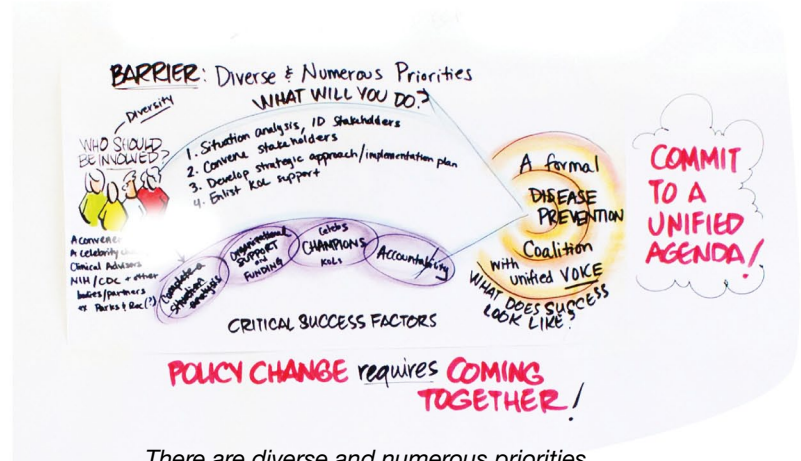 BARRIER: Diverse & Numerous Priorities
WHAT WILL YOU DO?
Diversity
WHO SHOULD
BE INVOLVED?
1. Situation analysis, ID Stakeholders
2. Convene stakeholders
3. Develop strategic approach/implementation plan
4. Enlist KOL support
A convener
A celebrity
Clinical Advisors
NIH/CDC + other
bodies/partners
Parks & Rec(?)
Complete a
situation
analysis
Organizational
SUPPORT
and
FUNDING
Celebs
CHAMPIONS
KOLs
Accountability
CRITICAL SUCCESS FACTORS
A formal
DISEASE
PREVENTION
Coalition
with
unified VOICE
WHAT DOES SUCCESS
LOOK LIKE?
COMMIT
TO A
UNIFIED
AGENDA!
POLICY CHANGE requires COMING
TOGETHER!
There are diverse and numerous priorities